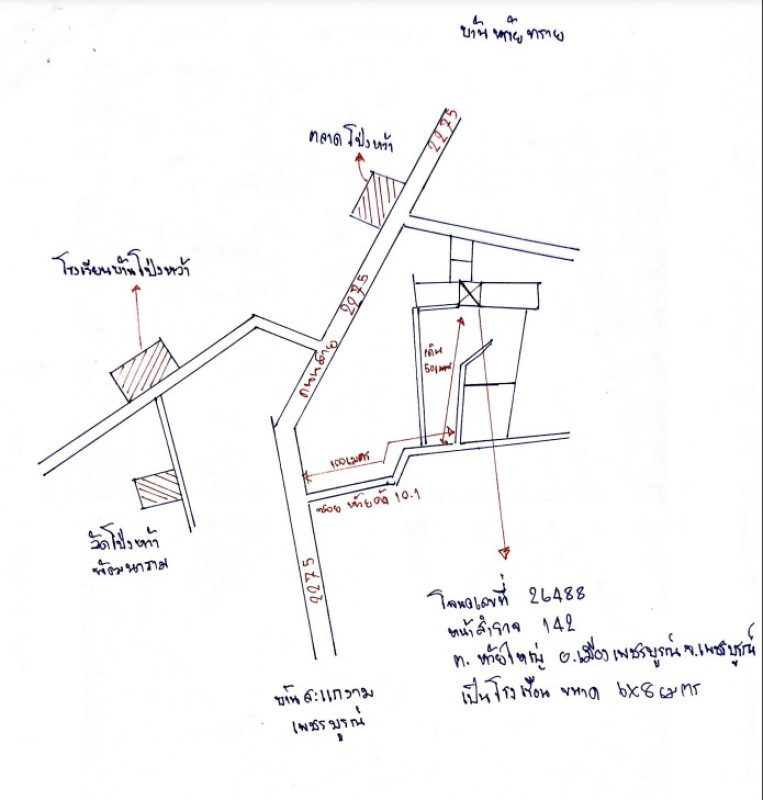 บ้านห้วยทราย
2275
ตลาดโป่งหว้า
โรงเรียนบ้านโป่งหว้า
2275
ถนนสาย
เดิน
50เมตร
100เมตร
ซอย ห้วยคต 10.1
วัดโป่งหว้า
พัฒนาราม
2275
โฉนดเลขที่ 26488
หน้าสำรวจ 142
ต. ห้วยใหญ่ อ.เมืองเพชรบูรณ์ จ.เพชรบูรณ์
เป็นโรงเรือน ขนาด 6x8 เมตร
บ้านสะแกงาม
เพชรบูรณ์